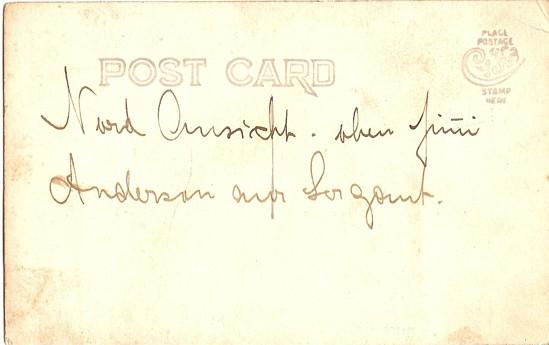 POST CARD
PLACE
POSTAGE
STAMP
HERE
Nord Ansicht. oben Jimi
Anderson